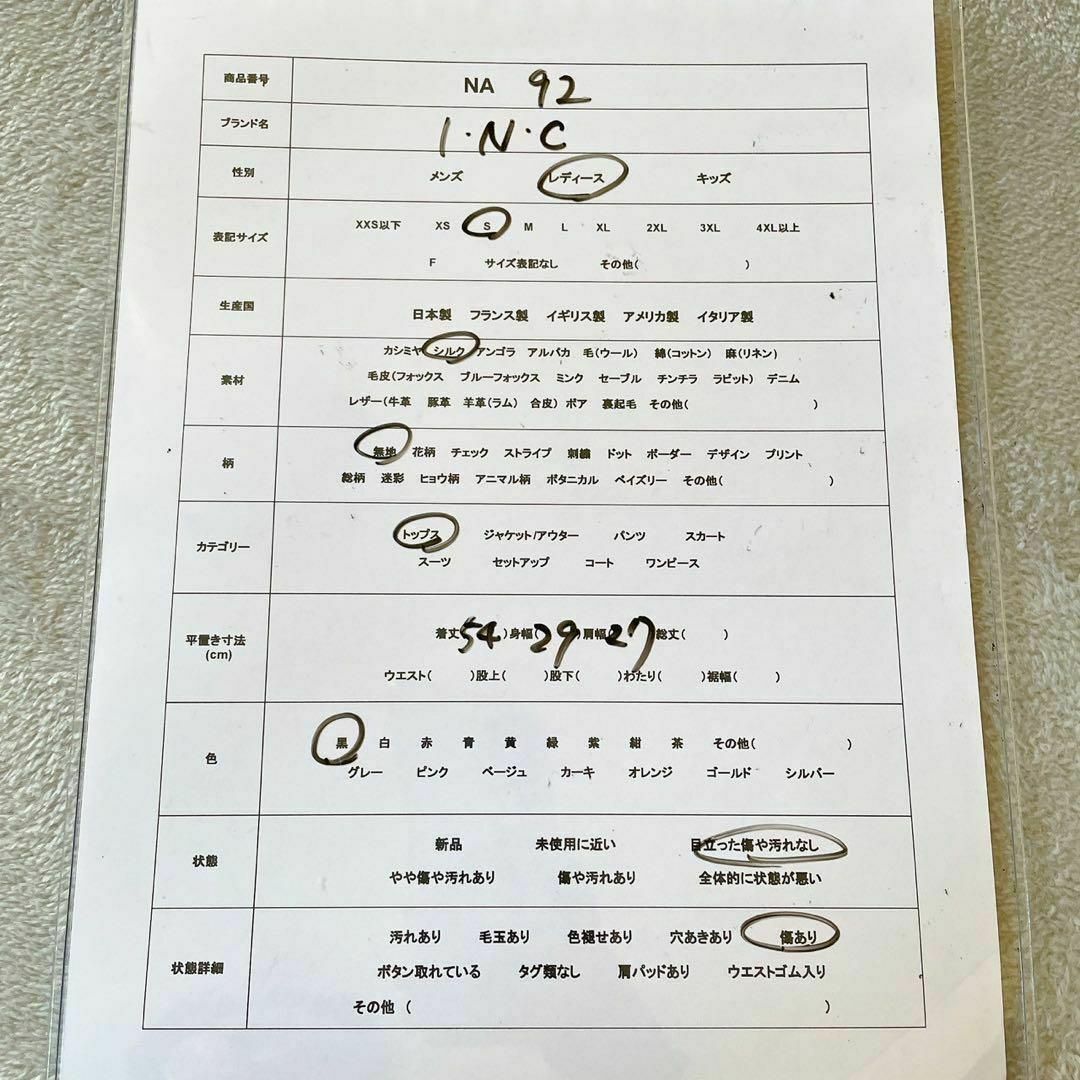 商品番号 NA 92
ブランド名 I・N・C
性別 メンズ レディース キッズ
XXS以下 XS S M L XL 2XL 3XL 4XL以上
表記サイズ
F サイズ表記なし その他( )
生産国 日本製 フランス製 イギリス製 アメリカ製 イタリア製
カシミヤ シルク アンゴラ アルパカ 毛(ウール) 綿(コットン) 麻(リネン)
素材 毛皮(フォックス ブルーフォックス ミンク セーブル チンチラ ラビット) デニム
レザー(牛革 豚革 羊革(ラム) 合皮) ボア 裏起毛 その他( )
無地 花柄 チェック ストライプ 刺繍 ドット ボーダー デザイン プリント
柄
総柄 迷彩 ヒョウ柄 アニマル柄 ボタニカル ペイズリー その他( )
トップス ジャケット/アウター パンツ スカート
カテゴリー
スーツ セットアップ コート ワンピース
平置き寸法 着丈 54 )身幅( 29 )肩幅( 27 )総丈( )
(cm)
ウエスト( )股上( )股下( )わたり( )裾幅( )
黒 白 赤 青 黄 緑 紫 紺 茶 その他( )
色
グレー ピンク ベージュ カーキ オレンジ ゴールド シルバー
新品 未使用に近い 目立った傷や汚れなし
状態
やや傷や汚れあり 傷や汚れあり 全体的に状態が悪い
汚れあり 毛玉あり 色褪せあり 穴あきあり 傷あり
状態詳細 ボタン取れている タグ類なし 肩パッドあり ウエストゴム入り
その他 ( )